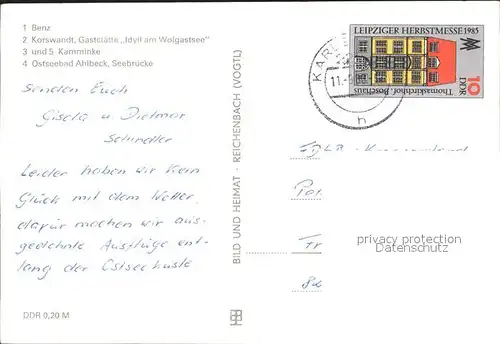 1 Benz
2 Korswandt, Gaststätte „Idyll am Wolgastsee"
3 und 5 Kamminke
4 Ostseebad Ahlbeck, Seebrücke
Senden Euch
Gisela u. Dietmar
Schindler
Leider haben wir kein
Glück mit dem Wetter,
dafür machen wir aus-
gedehnte Ausflüge ent-
lang der Ostseeküste
DDR 0,20 M
BILD UND HEIMAT · REICHENBACH (VOGTL)
KARL
11.
h
LEIPZIGER HERBSTMESSE 1985
MM
10
DDR
Thomaskirchhof, Bosehaus
privacy protection
Datenschutz